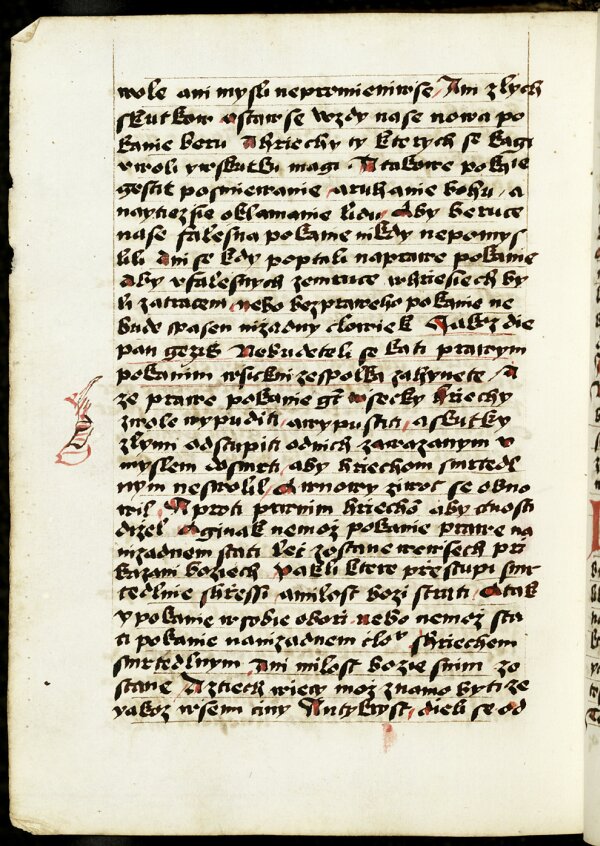 wole ani mysli nepromieniwse / Ani zlych
skutkow ostawse wzdy nase nowa po
kanie beru A hriechy ty kterych se kagi
w woli y wskutku magi · A takowe pokanie
gestit posmiewanie a ruhanie bohu / a
naytiezsie oklamanie lidu / Aby beruce
nase falesna pokanie nikdy nepomys
lili Ani se kdy poptali naprawe pokanie
Aby wfalesnych zemruce whriesiech by
li zatraceni nebo bezpraweho pokanie ne
bude spasen nizadny clowiek Jakoz die
pan gezis Nebudeteli se kati prawym
pokanim wsickni zespolka zahynete / A
ze prawe pokanie gt wsecky hriechy
zwole wypuditi a wypustiti / a skutky
zlymi odstupiti odnich zawazanym v
myslem dosmrti aby hriechom smrtedl
nym neswolil / A wnowy ziwot se obno
wil A proti prwnim hriecho aby ctnosti
drzel A ginak nemoz pokanie prawe na
nizadnem stati lec zostane wewsech pri
kazani boziech pakli ktere prestupi smr
tedlnie shressi a milost bozi strati / A tak
y pokanie wsobie obori nebo nemoz sta
ti pokanie nanizadnem clow shriechem
smrtedlnym Ani milost bozie snim zo
stane / A ztiech wiecy moz znamo byti ze
yakoz wsemi ciny Antykryst dieli se od